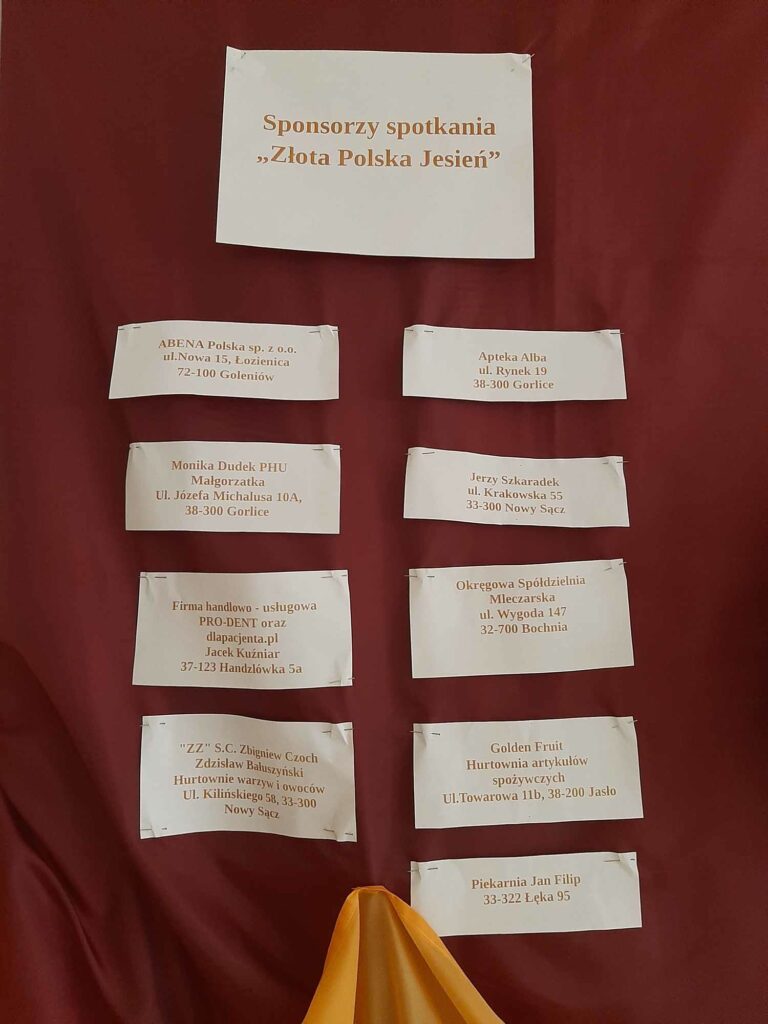 Sponsorzy spotkania
„Złota Polska Jesień”
ABENA Polska sp. z o.o.
ul.Nowa 15, Łozienica
72-100 Goleniów
Apteka Alba
ul. Rynek 19
38-300 Gorlice
Monika Dudek PHU
Małgorzatka
Ul. Józefa Michalusa 10A,
38-300 Gorlice
Jerzy Szkaradek
ul. Krakowska 55
33-300 Nowy Sącz
Firma handlowo - usługowa
PRO-DENT oraz
dlapacjenta.pl
Jacek Kuźniar
37-123 Handzlówka 5a
Okręgowa Spółdzielnia
Mleczarska
ul. Wygoda 147
32-700 Bochnia
"ZZ" S.C. Zbigniew Czoch
Zdzisław Bałuszyński
Hurtownie warzyw i owoców
Ul. Kilińskiego 58, 33-300
Nowy Sącz
Golden Fruit
Hurtownia artykułów
spożywczych
Ul.Towarowa 11b, 38-200 Jasło
Piekarnia Jan Filip
33-322 Łęka 95